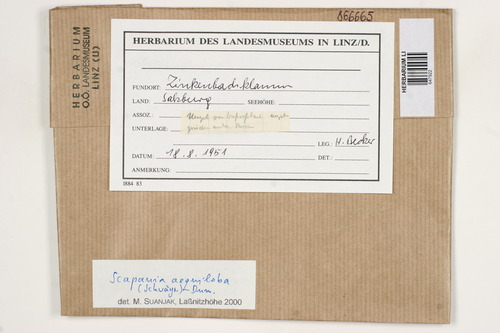 066665
HERBARIUM
O.Ö. LANDESMUSEUM
LINZ (LI)
HERBARIUM DES LANDESMUSEUMS IN LINZ/D.
FUNDORT: Zinkenbachklamm
LAND: Salzburg SEEHÖHE:
ASSOZ.:
UNTERLAGE:
LEG.: H. Becker
DATUM: 18.8.1951 DET.:
ANMERKUNG:
1884 83
HERBARIUM LI
Scapania aequiloba
(Schwägr.) Dum.
det. M. SUANJAK, Laßnitzhöhe 2000